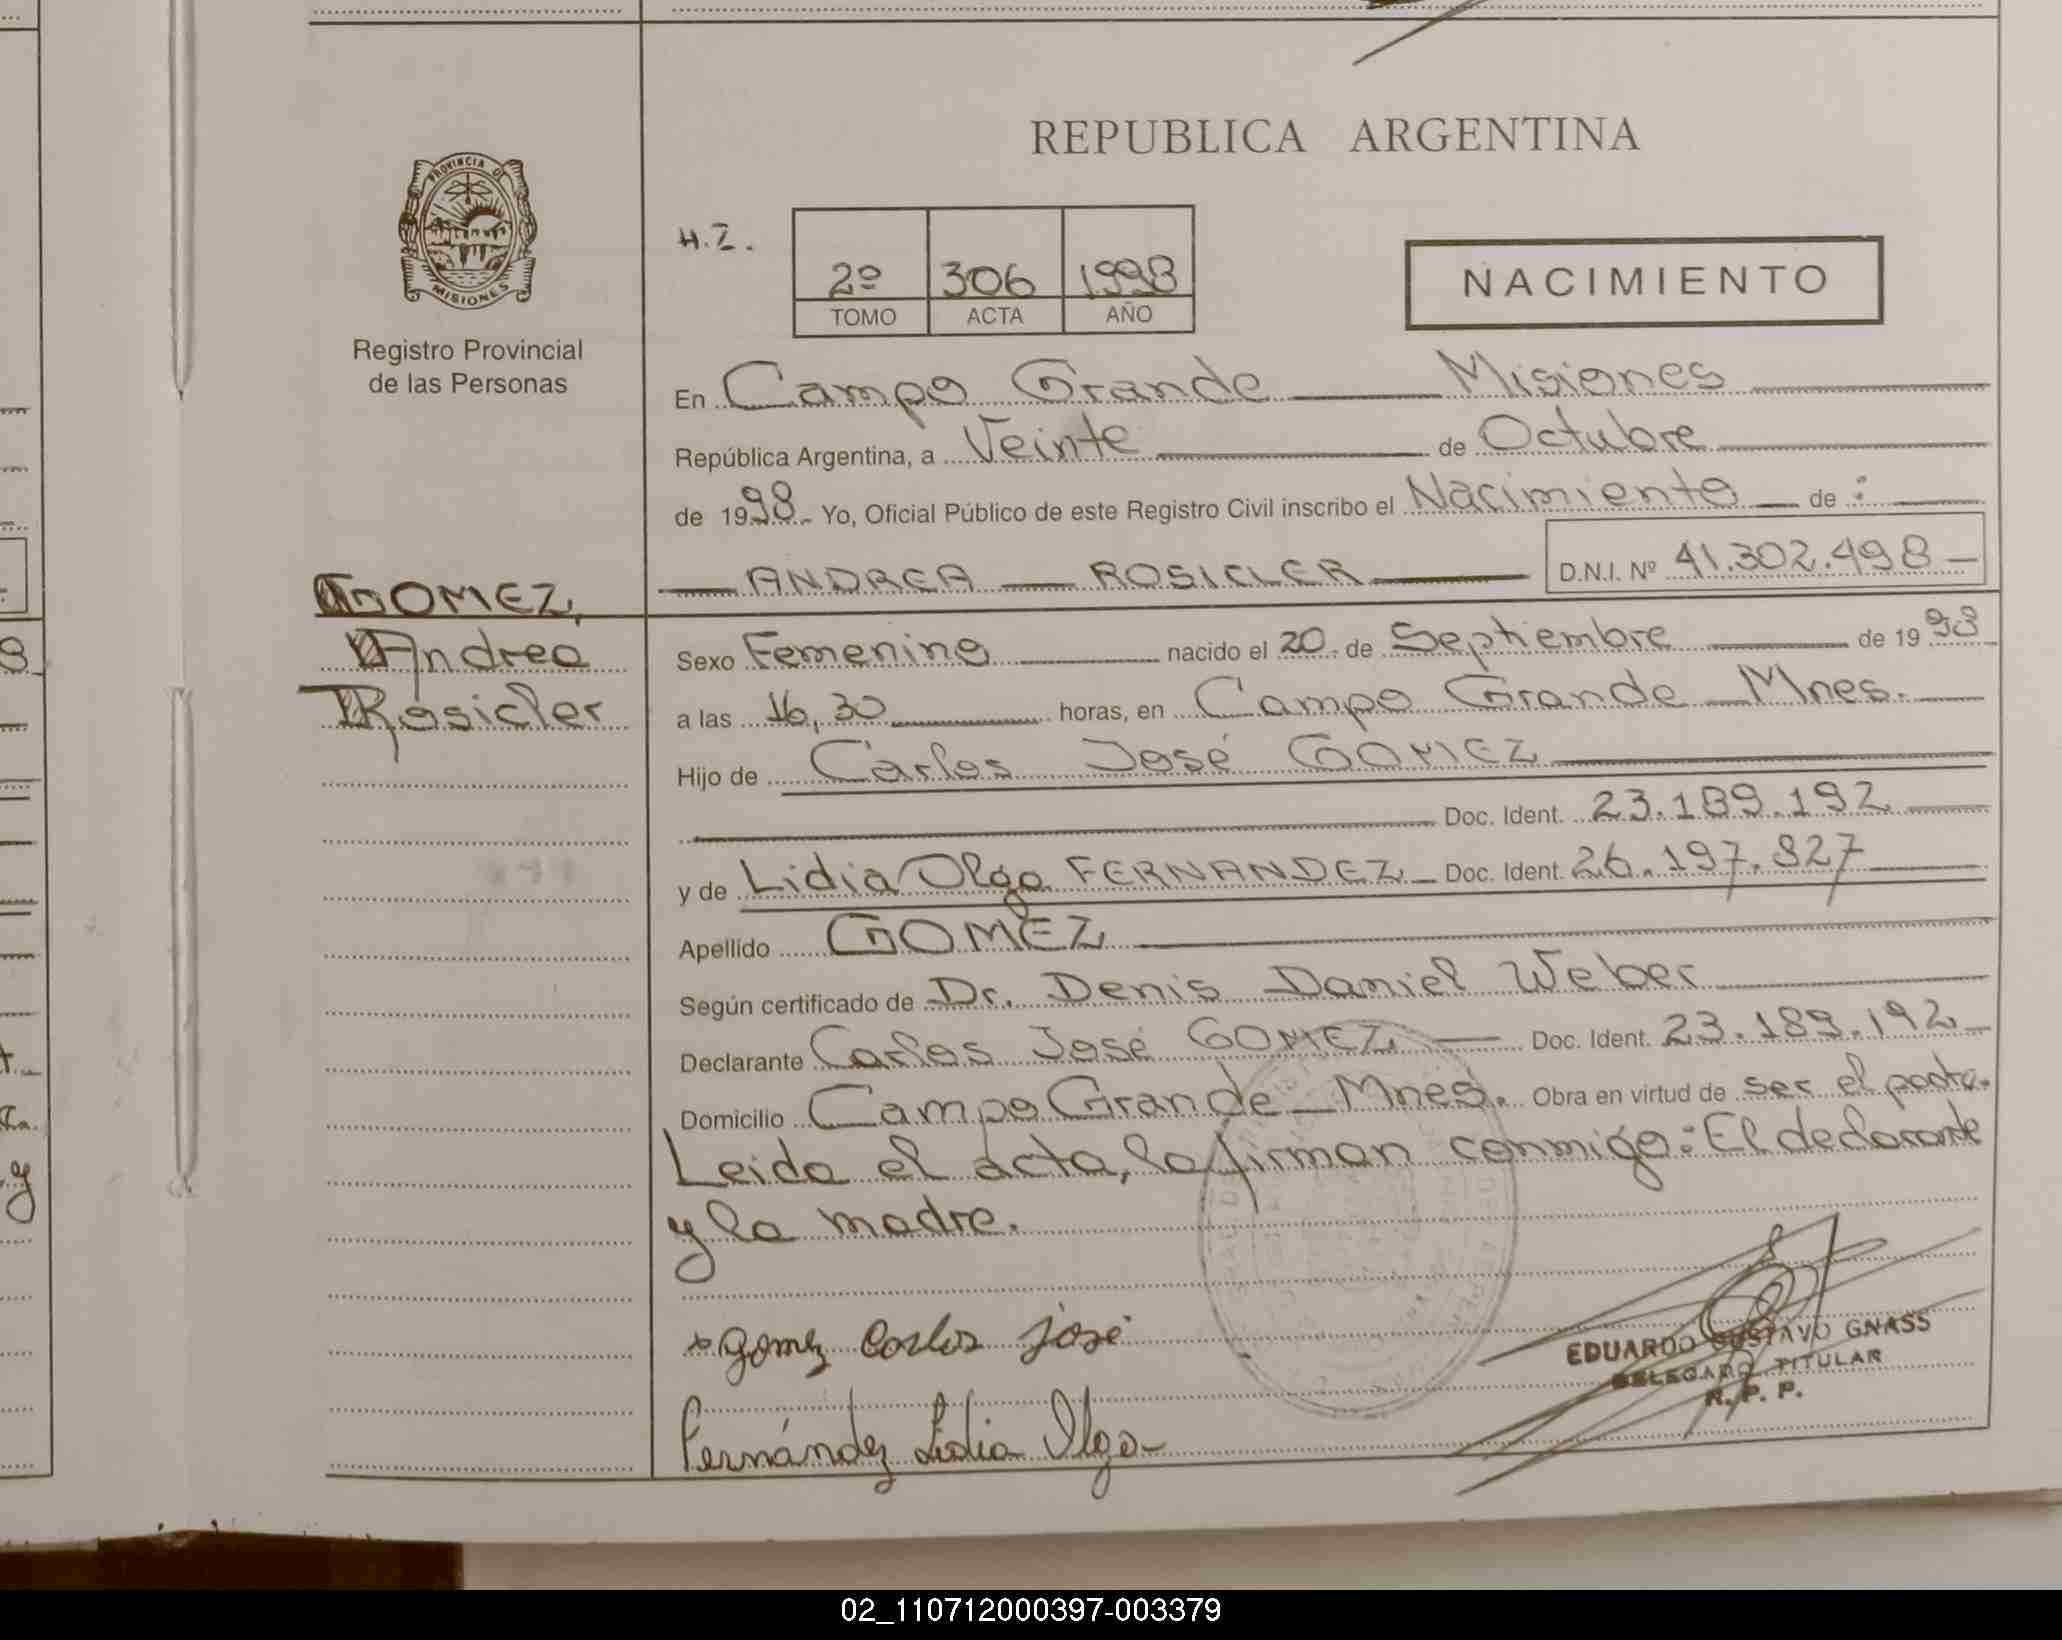 REPUBLICA ARGENTINA
PROVINCIA DE
MISIONES
Registro Provincial
de las Personas
H.Z.
2º 306 1998
TOMO ACTA AÑO
NACIMIENTO
En Campo Grande Misiones
República Argentina, a Veinte de Octubre
de 1998 Yo, Oficial Público de este Registro Civil inscribo el Nacimiento de :
ANDREA ROSICLER D.N.I. Nº 41.302.498
GOMEZ,
Andrea
Rosicler
Sexo Femenino nacido el 20 de Septiembre de 1998
a las 16,30 horas, en Campo Grande Mnes.
Hijo de Carlos José GOMEZ
Doc. Ident. 23.189.192
y de Lidia Olga FERNANDEZ Doc. Ident. 26.197.827
Apellido GOMEZ
Según certificado de Dr. Denis Daniel Weber
Declarante Carlos José GOMEZ Doc. Ident. 23.189.192
Domicilio Campo Grande Mnes. Obra en virtud de ser el padre.
Leida el acta, la firman conmigo: El declarante
y la madre.
Gomez Carlos José
Fernández Lidia Olga
EDUARDO GUSTAVO GNASS
DELEGADO TITULAR
R. P. P.
02_110712000397-003379